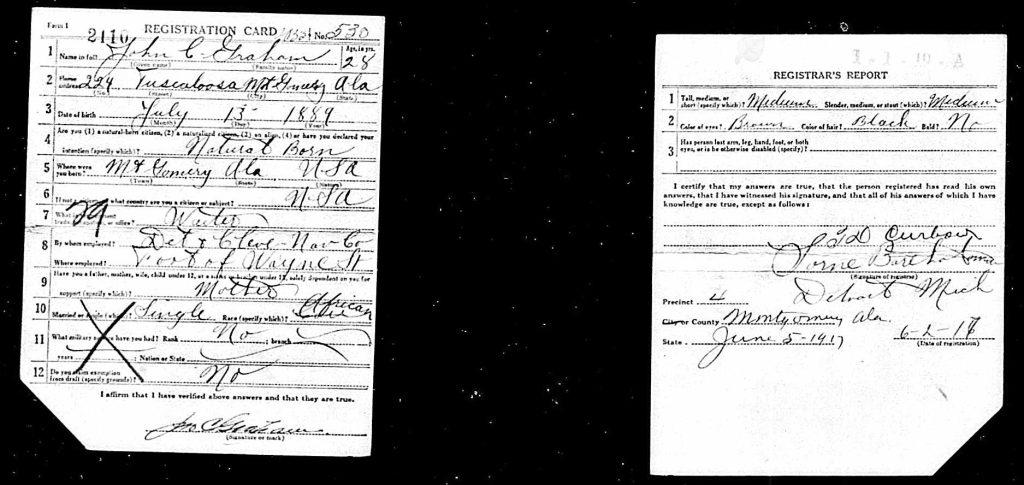 Form 1
2110 REGISTRATION CARD No. 530
1 Name in full John C. Graham Age, in yrs. 28
(Given name) (Family name)
2 Home address 224 Tuscaloosa Mt Gmery Ala
(No.) (Street) (City) (State)
3 Date of birth July 13 1889
(Month) (Day) (Year)
4 Are you (1) a natural-born citizen, (2) a naturalized citizen, (3) an alien, (4) or have you declared your
intention (specify which)? Natural Born
5 Where were you born? Mt Gomery Ala USA
(Town) (State) (Nation)
6 If not a citizen, of what country are you a citizen or subject? USA
7 What is your present trade, occupation, or office? Waiter
29
8 By whom employed? Det & Cleve Nav Co
Where employed? Foot of Wayne St
9 Have you a father, mother, wife, child under 12, or a sister or brother under 12, solely dependent on you for
support (specify which)? Mother
10 Married or single (which)? Single Race (specify which)? African
11 What military service have you had? Rank No ; branch
years ; Nation or State
12 Do you claim exemption from draft (specify grounds)? No
I affirm that I have verified above answers and that they are true.
Jno C Graham
(Signature or mark)
REGISTRAR'S REPORT
1 Tall, medium, or short (specify which)? Medium Slender, medium, or stout (which)? Medium
2 Color of eyes? Brown Color of hair? Black Bald? No
3 Has person lost arm, leg, hand, foot, or both
eyes, or is he otherwise disabled (specify)?
I certify that my answers are true, that the person registered has read his own
answers, that I have witnessed his signature, and that all of his answers of which I
have knowledge are true, except as follows:
(Signature of registrar)
Detroit Mich
Precinct 4
City or County Montgomery Ala.
State June 5-1917
6-2-17
(Date of registration)